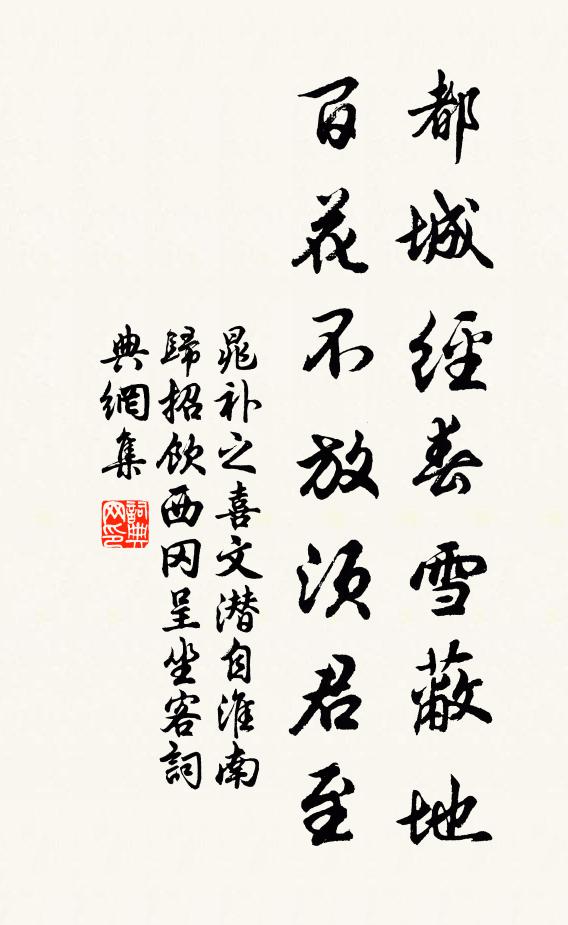 都城經春雪蔽地
百花不放須君至
晁补之喜文潜自淮南
歸招飲西冈呈坐客詞
典網集
詞典网印